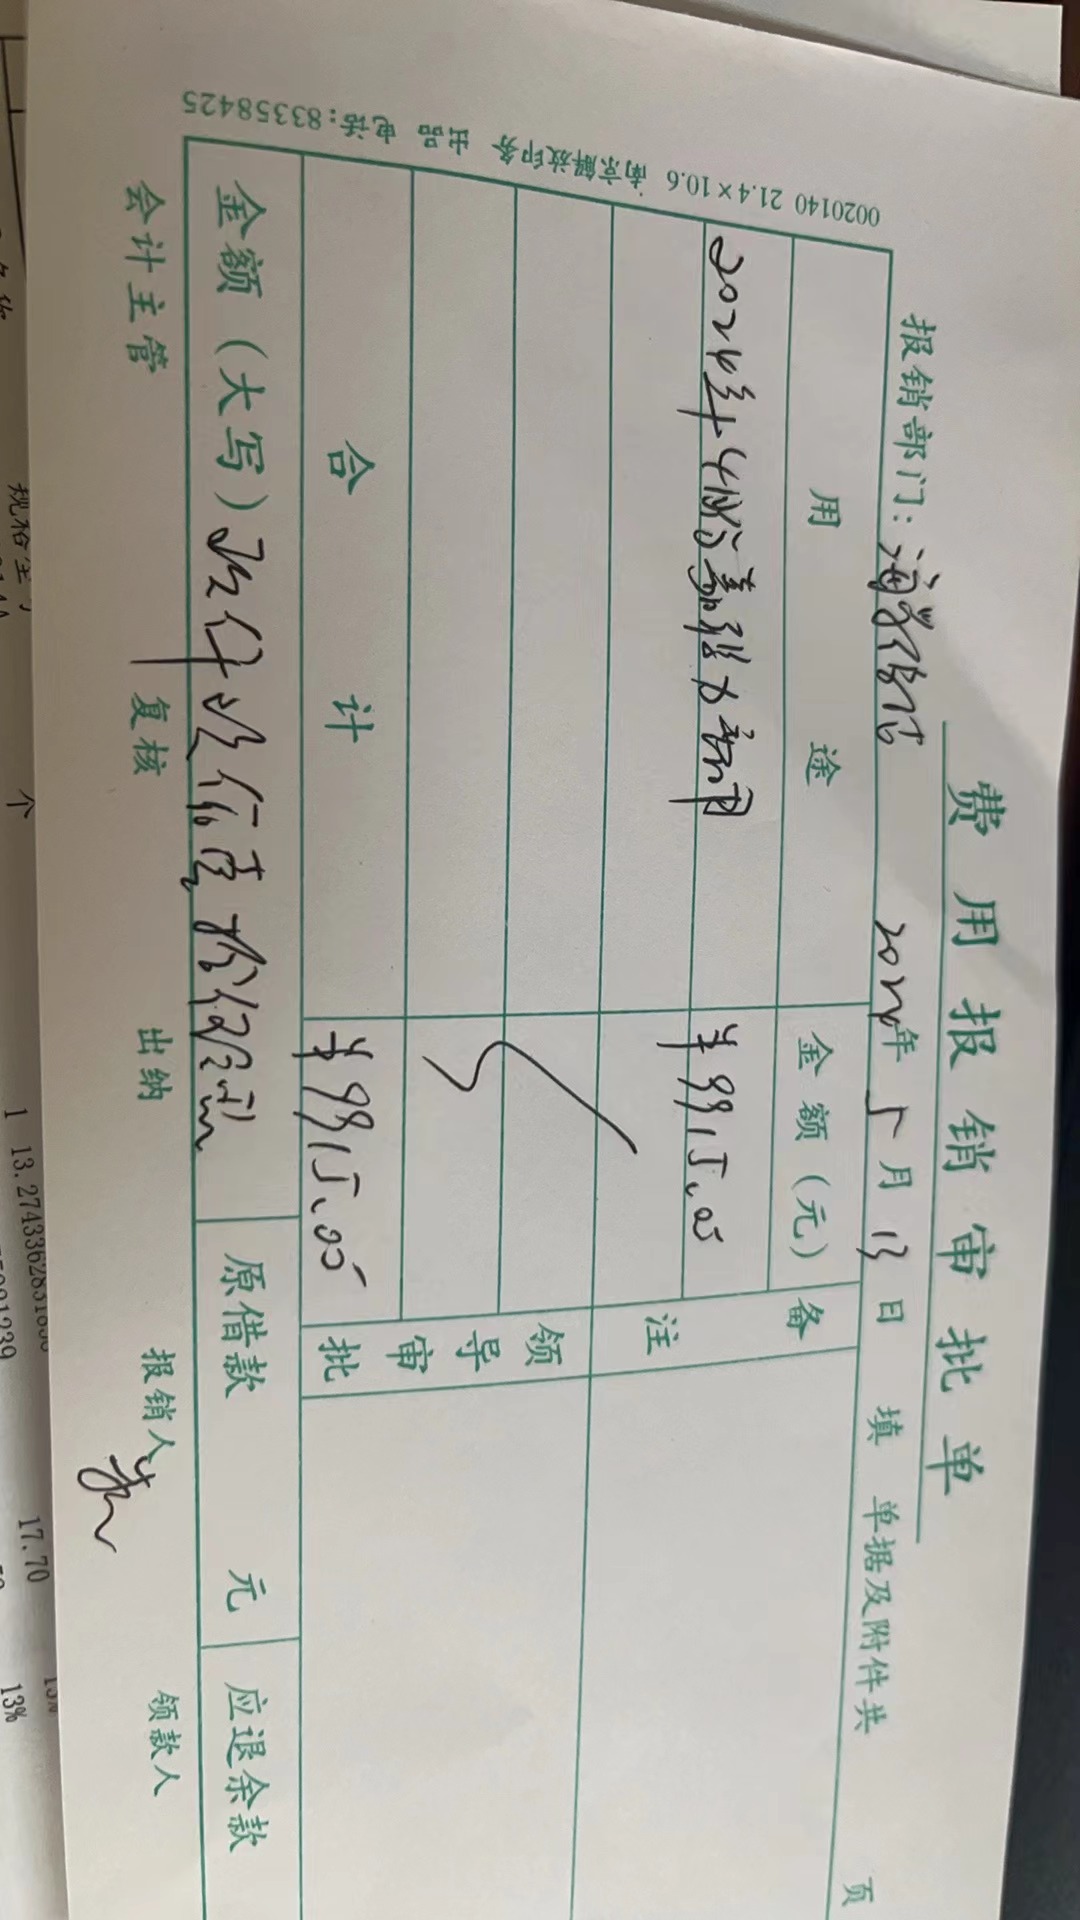 费用报销审批单
报销部门： 2024年5月13日填 单据及附件共 页
用途 金额（元） 备注
2024年4月份 ￥9915.00
领导审批
合计 ￥9915.00
金额（大写） 玖仟玖佰壹拾伍元 原借款 元 应退余款
会计主管 复核 出纳 报销人 领款人
0020140 21.4×10.6 南京解放印务 出品 电话:83358425
规格型
个 1 13.27433628318 17.70 13%